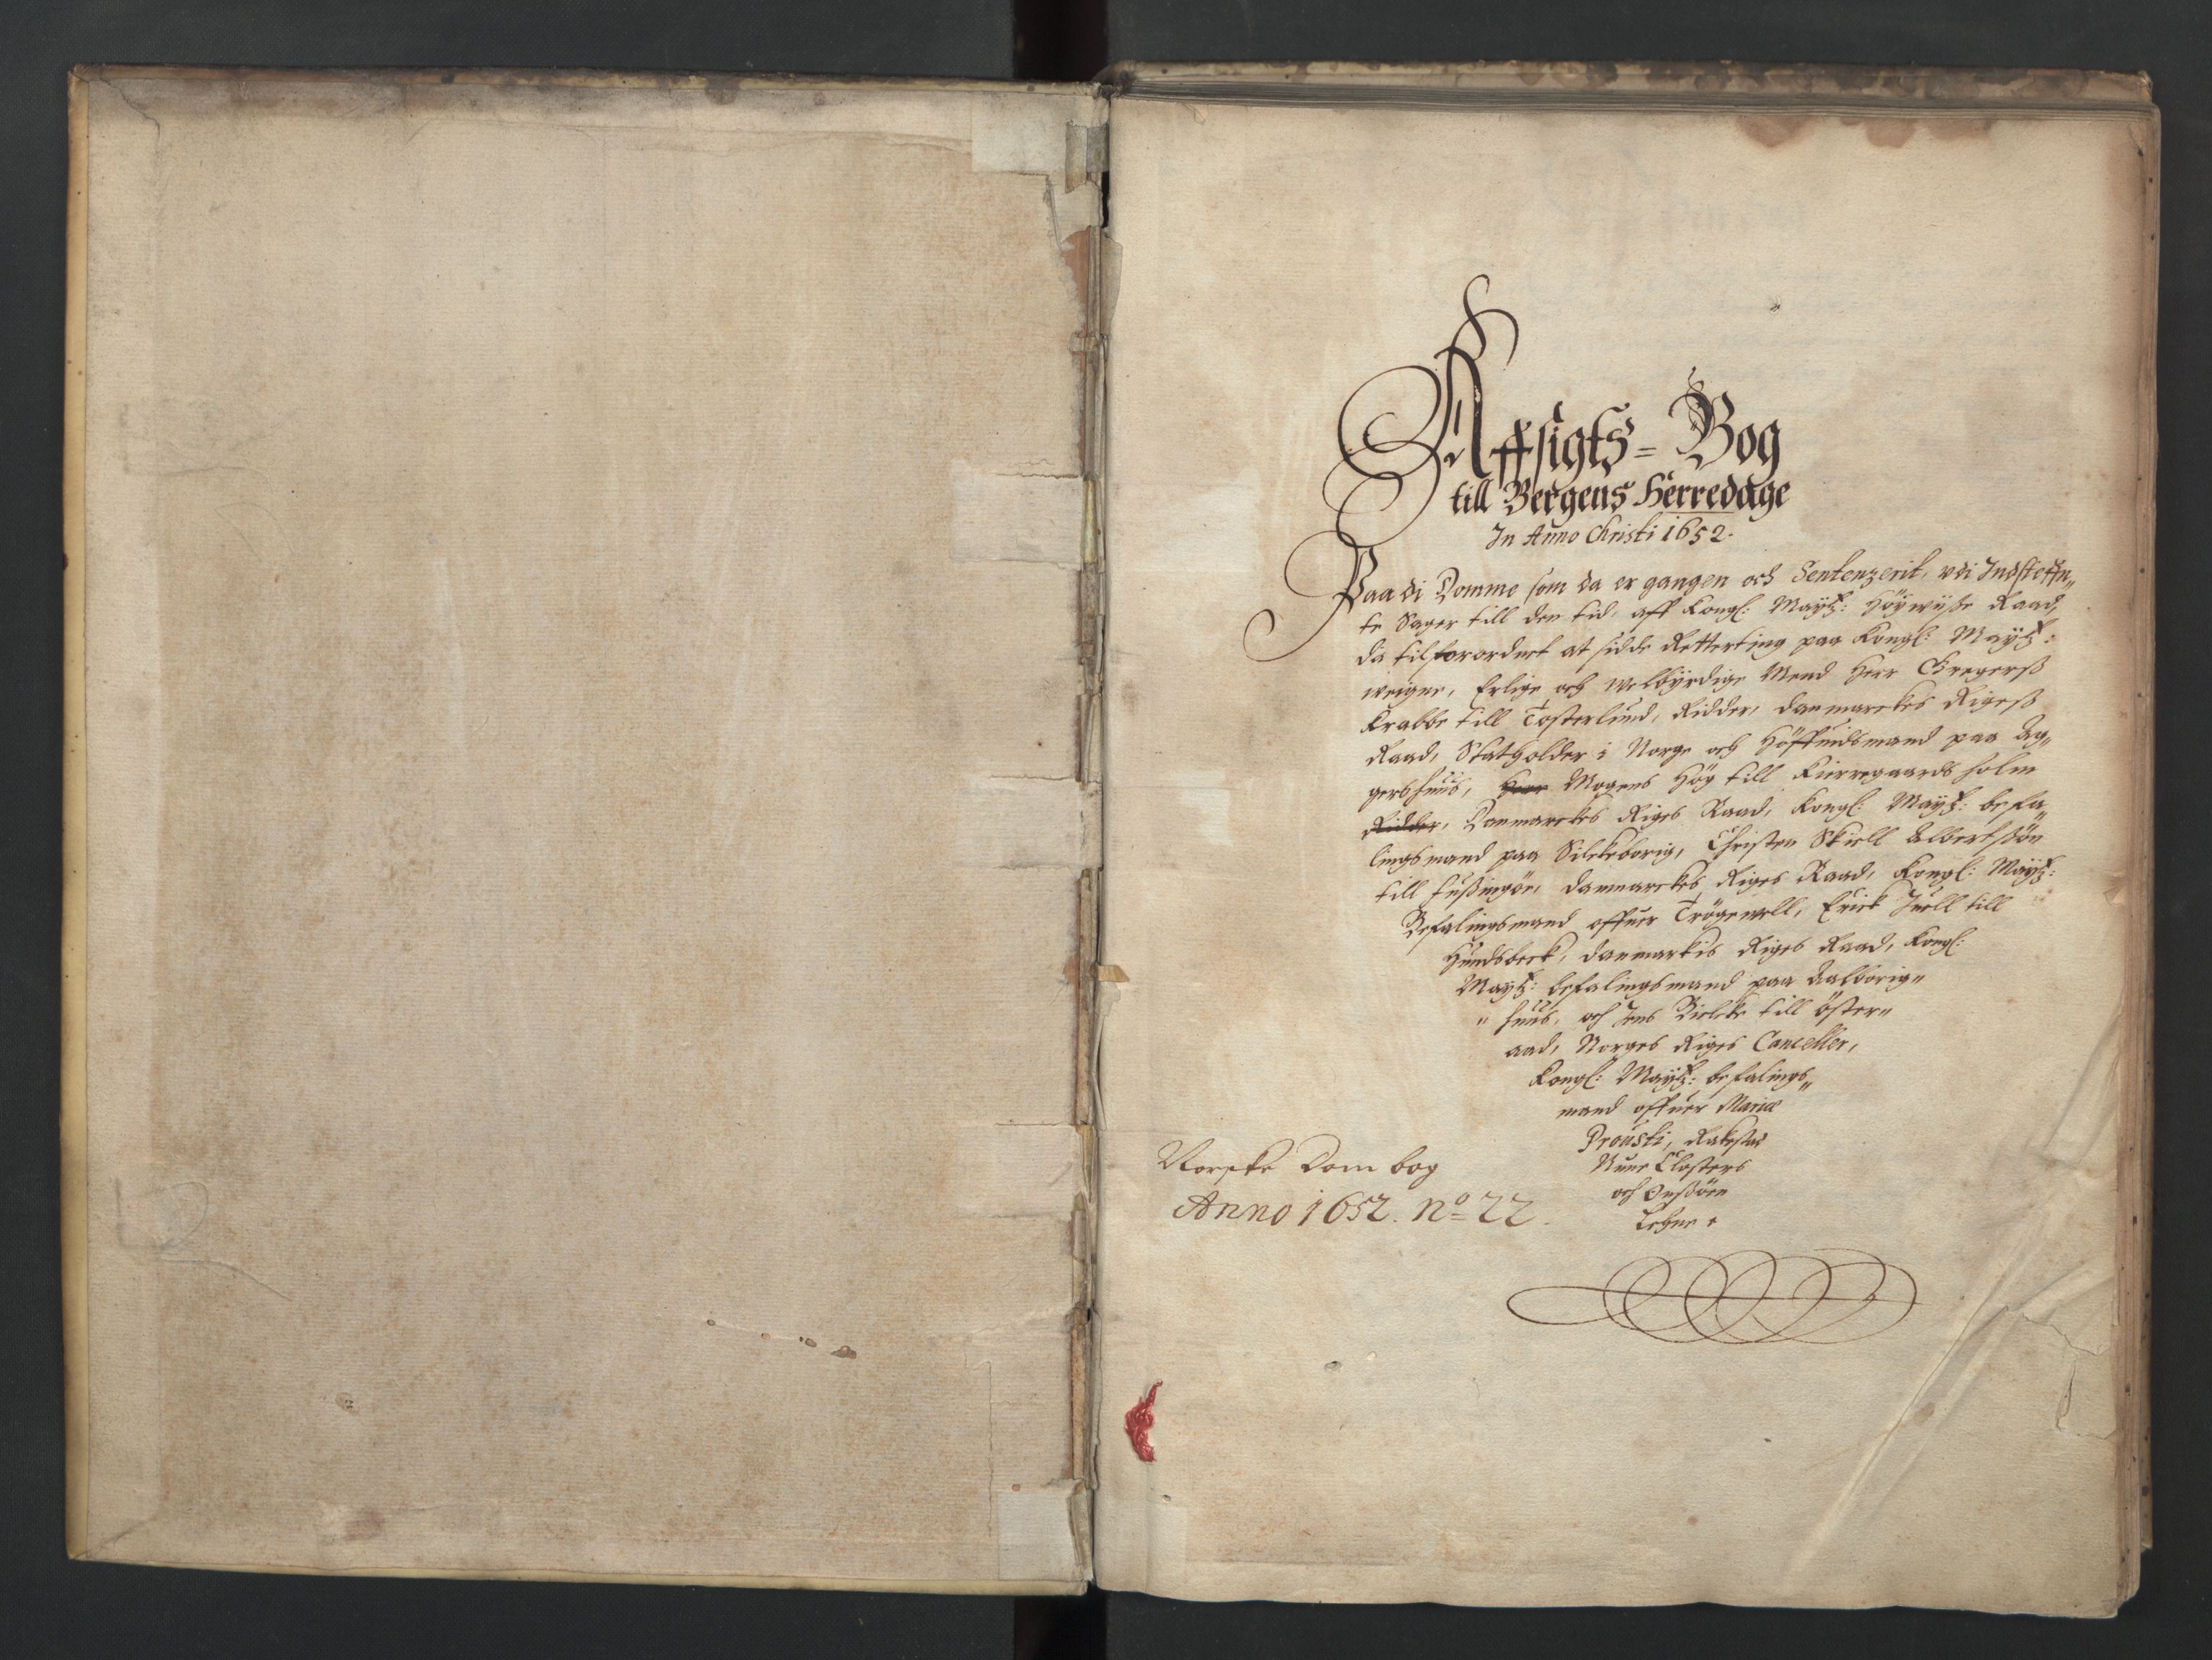 Affsigts=Bog
till Bergens Herredage
In Anno Christi 1652.
Paa di Domme som da er gangen och Sentenzerit, vdi Indsteffn„
te Sager till den tid, aff Kongl: Mayt: Höywyse Raad,
da tilforordnet at sidde Retterting paa Kongl: Mayt:
weigne, Erlige och Welbyrdige Mend Herr Gregerß
Krabbe till Tosterlund, Ridder, Danmarckes Rigeß
Raad, Statholder i Norge och Höffuidsmand paa Ag„
gershuus, Herr Mogens Hög till Kierregaardsholm
Ridder, Danmarckes Riges Raad, Kongl: Mayt: befa„
lingsmand paa Silckeborig, Christen Skiell Albertßön
till Fußingöe, Danmarckes Riges Raad, Kongl: Mayt:
Befalingsmand offuer Trögewell, Erick Juell till
Hundsbeck, Danmarkis Riges Raad, Kongl:
Mayt: befalingsmand paa Aalborig„
„huus, och Jens Bielcke till Öster„
aad, Norges Riges Canceller,
Kongl: Mayt: befalings„
mand offuer Mariæ
Prousti,
Nune Closters
och Onßöen
Lehne.
Norske Dom bog
Anno 1652. No 22.